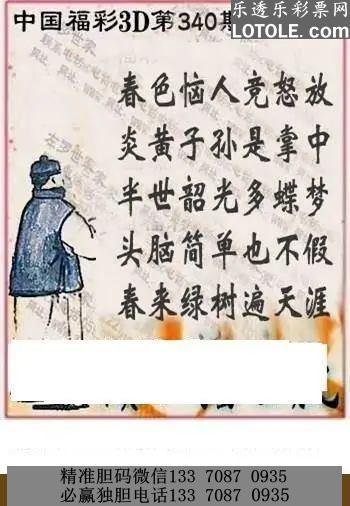 乐透乐彩票网
中国福彩3D第340期
LOTOLE.COM
春色恼人竞怒放
炎黄子孙是掌中
半世韶光多蝶梦
头脑简单也不假
春来绿树遍天涯
精准胆码微信133 7087 0935
必赢独胆电话133 7087 0935